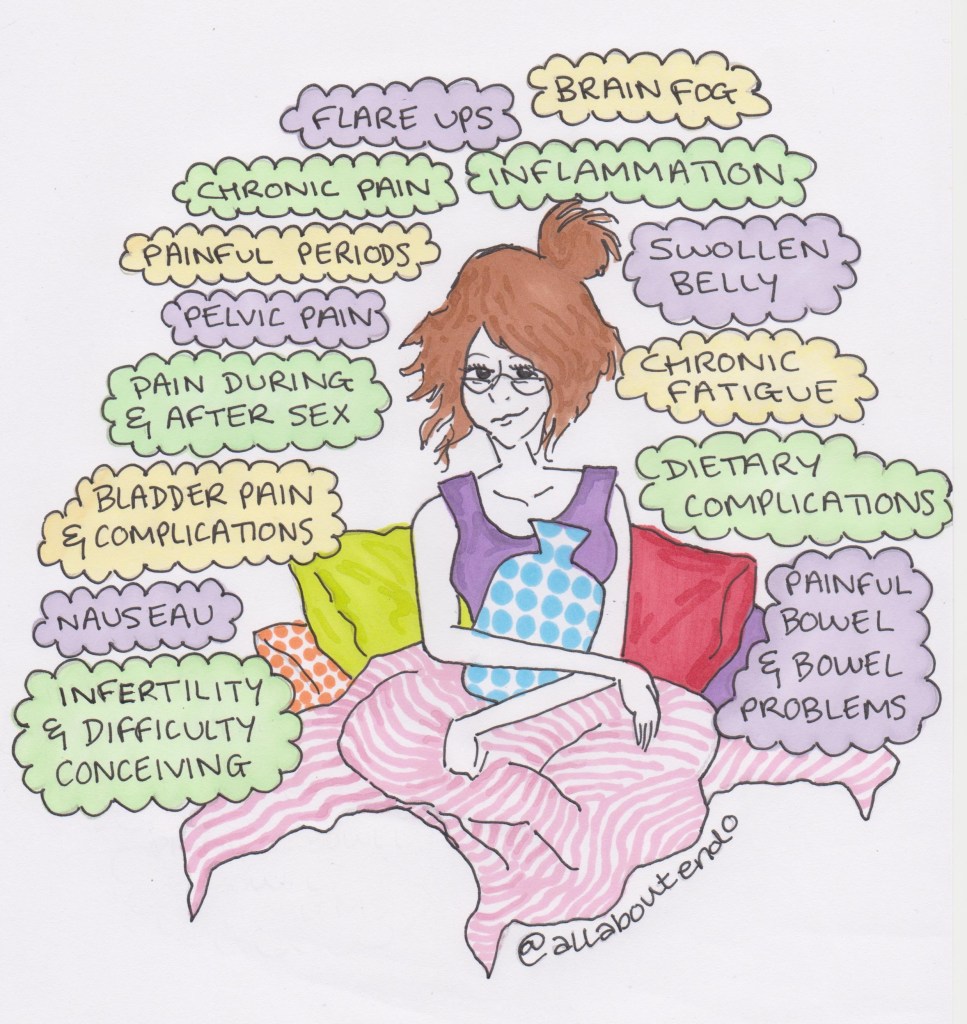 BRAIN FOG
FLARE UPS
CHRONIC PAIN
INFLAMMATION
PAINFUL PERIODS
SWOLLEN
BELLY
PELVIC PAIN
CHRONIC
FATIGUE
PAIN DURING
& AFTER SEX
DIETARY
COMPLICATIONS
BLADDER PAIN
& COMPLICATIONS
PAINFUL
BOWEL
& BOWEL
PROBLEMS
NAUSEAU
INFERTILITY
& DIFFICULTY
CONCEIVING
@allaboutendo